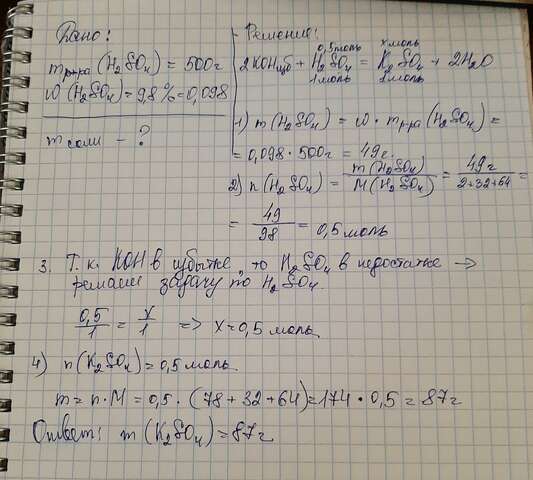 Дано:
mр-ра (H₂SO₄) = 500г
ω (H₂SO₄) = 9,8% = 0,098
m соли - ?
Решение:
0,5 моль x моль
2KOHизб + H₂SO₄ = K₂SO₄ + 2H₂O
1 моль 1 моль
1) m (H₂SO₄) = ω · mр-ра (H₂SO₄) =
= 0,098 · 500г = 49г.
2) n (H₂SO₄) = m(H₂SO₄) / M(H₂SO₄) = 49г / 2+32+64 =
= 49 / 98 = 0,5 моль
3. Т.к. KOH в избытке, то H₂SO₄ в недостатке →
решаем задачу по H₂SO₄.
0,5 / 1 = x / 1 => x = 0,5 моль
4) n (K₂SO₄) = 0,5 моль.
m = n · M = 0,5 · (78 + 32 + 64) = 174 · 0,5 = 87г
Ответ: m (K₂SO₄) = 87г